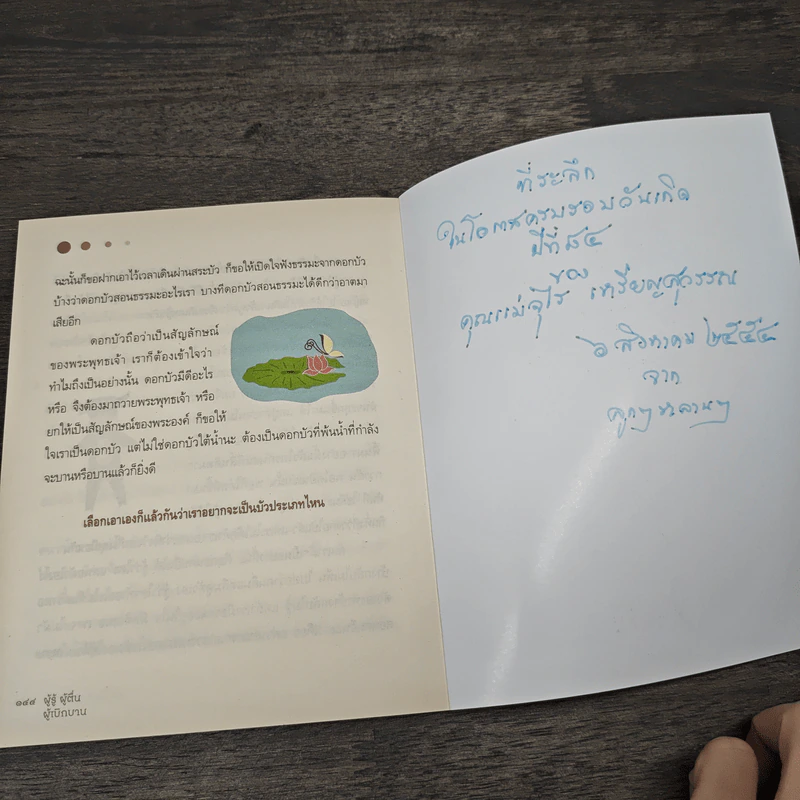 ฉะนั้นก็ขอฝากเอาไว้เวลาเดินผ่านสระบัว ก็ขอให้เปิดใจฟังธรรมะจากดอกบัว
บ้างว่าดอกบัวสอนธรรมะอะไรเรา บางทีดอกบัวสอนธรรมะได้ดีกว่าอาตมา
เสียอีก
ดอกบัวถือว่าเป็นสัญลักษณ์
ของพระพุทธเจ้า เราก็ต้องเข้าใจว่า
ทำไมถึงเป็นอย่างนั้น ดอกบัวมีดีอะไร
หรือ จึงต้องมาถวายพระพุทธเจ้า หรือ
ยกให้เป็นสัญลักษณ์ของพระองค์ ก็ขอให้
ใจเราเป็นดอกบัว แต่ไม่ใช่ดอกบัวใต้น้ำนะ ต้องเป็นดอกบัวที่พ้นน้ำที่กำลัง
จะบานหรือบานแล้วก็ยิ่งดี
เลือกเอาเองก็แล้วกันว่าเราอยากจะเป็นบัวประเภทไหน
๑๔๔ ผู้รู้ ผู้ตื่น
ผู้เบิกบาน
ที่ระลึก
ในโอกาสครบรอบวันเกิด
ปีที่ ๘๔
ของ
คุณแม่อุไร เหรียญสุวรรณ
๖ สิงหาคม ๒๕๕๔
จาก
ลูกๆหลานๆ